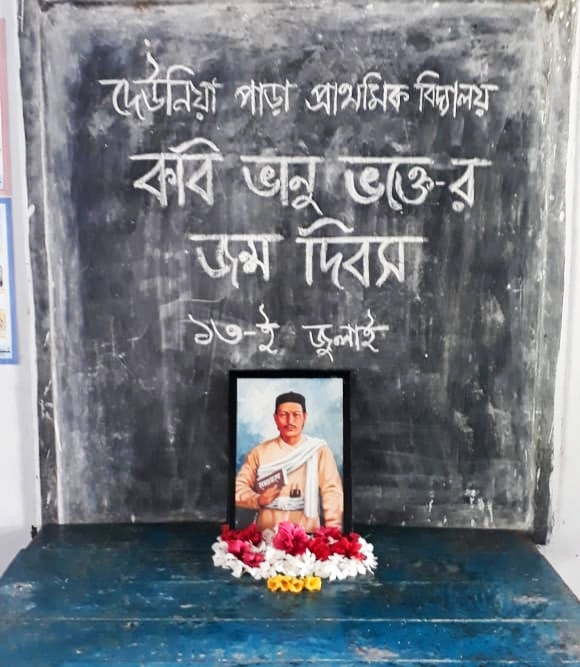 দেউনিয়া পাড়া প্রাথমিক বিদ্যালয়
কবি ভানু ভক্তে-র
জন্ম দিবস
১৩-ই জুলাই